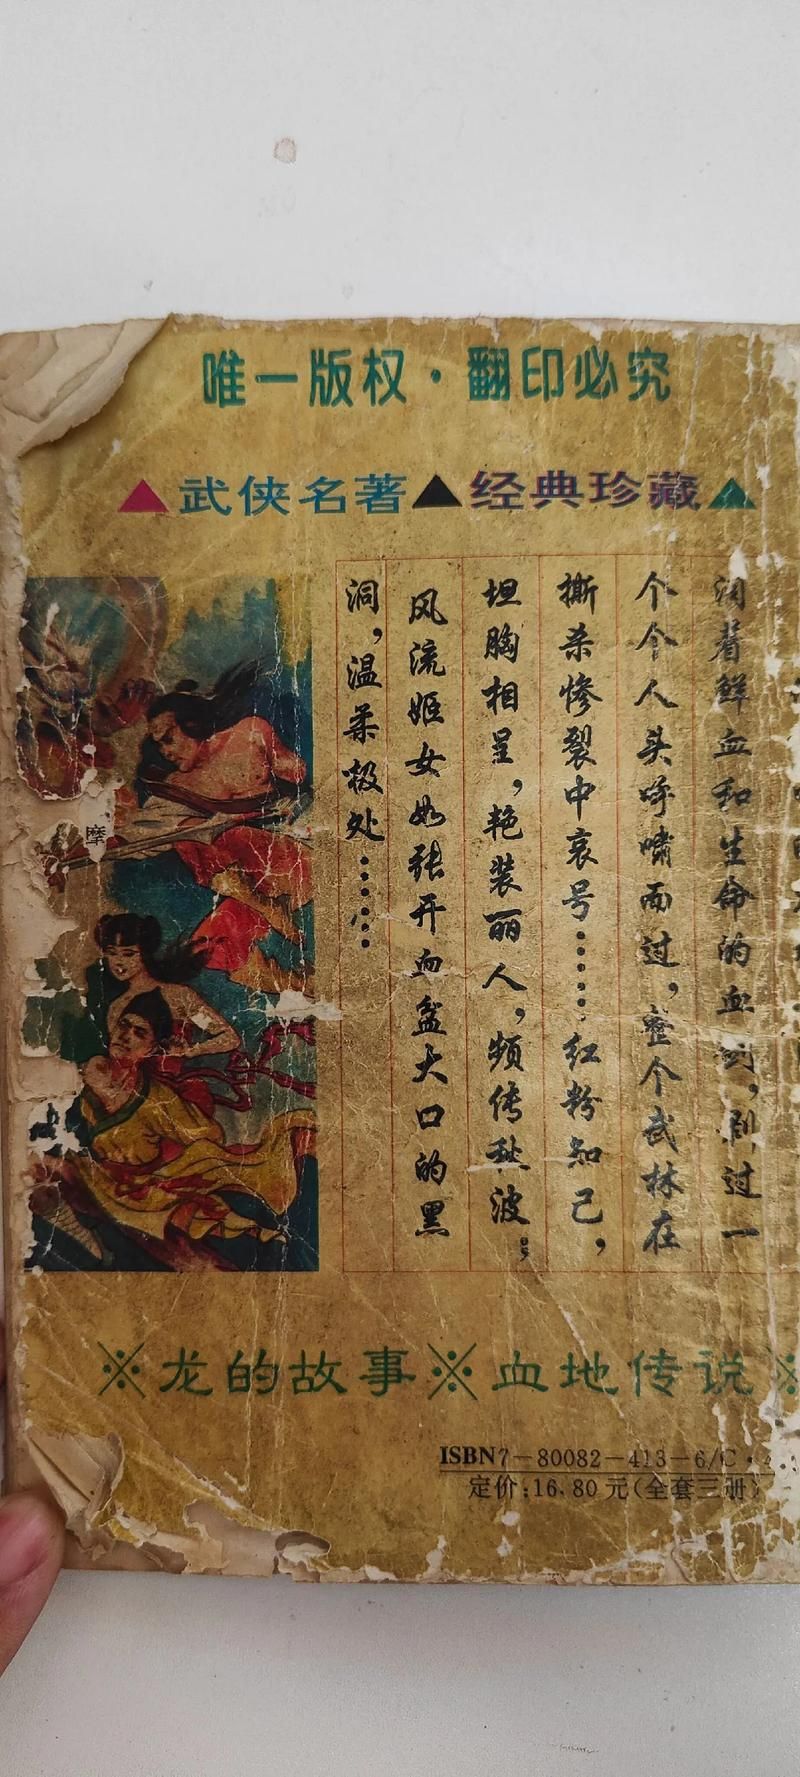 唯一版权·翻印必究
▲武侠名著▲经典珍藏▲
着鲜血和生命的血，剃过一
个个人头呼啸而过，整个武林在
撕杀惨裂中哀号……红粉知己，
坦胸相呈，艳装丽人，频传秋波；
风流姬女如张开血盆大口的黑
洞，温柔极处……
摩
※龙的故事※血地传说※
ISBN7-80082-413-6/C·
定价:16.80元(全套三册)